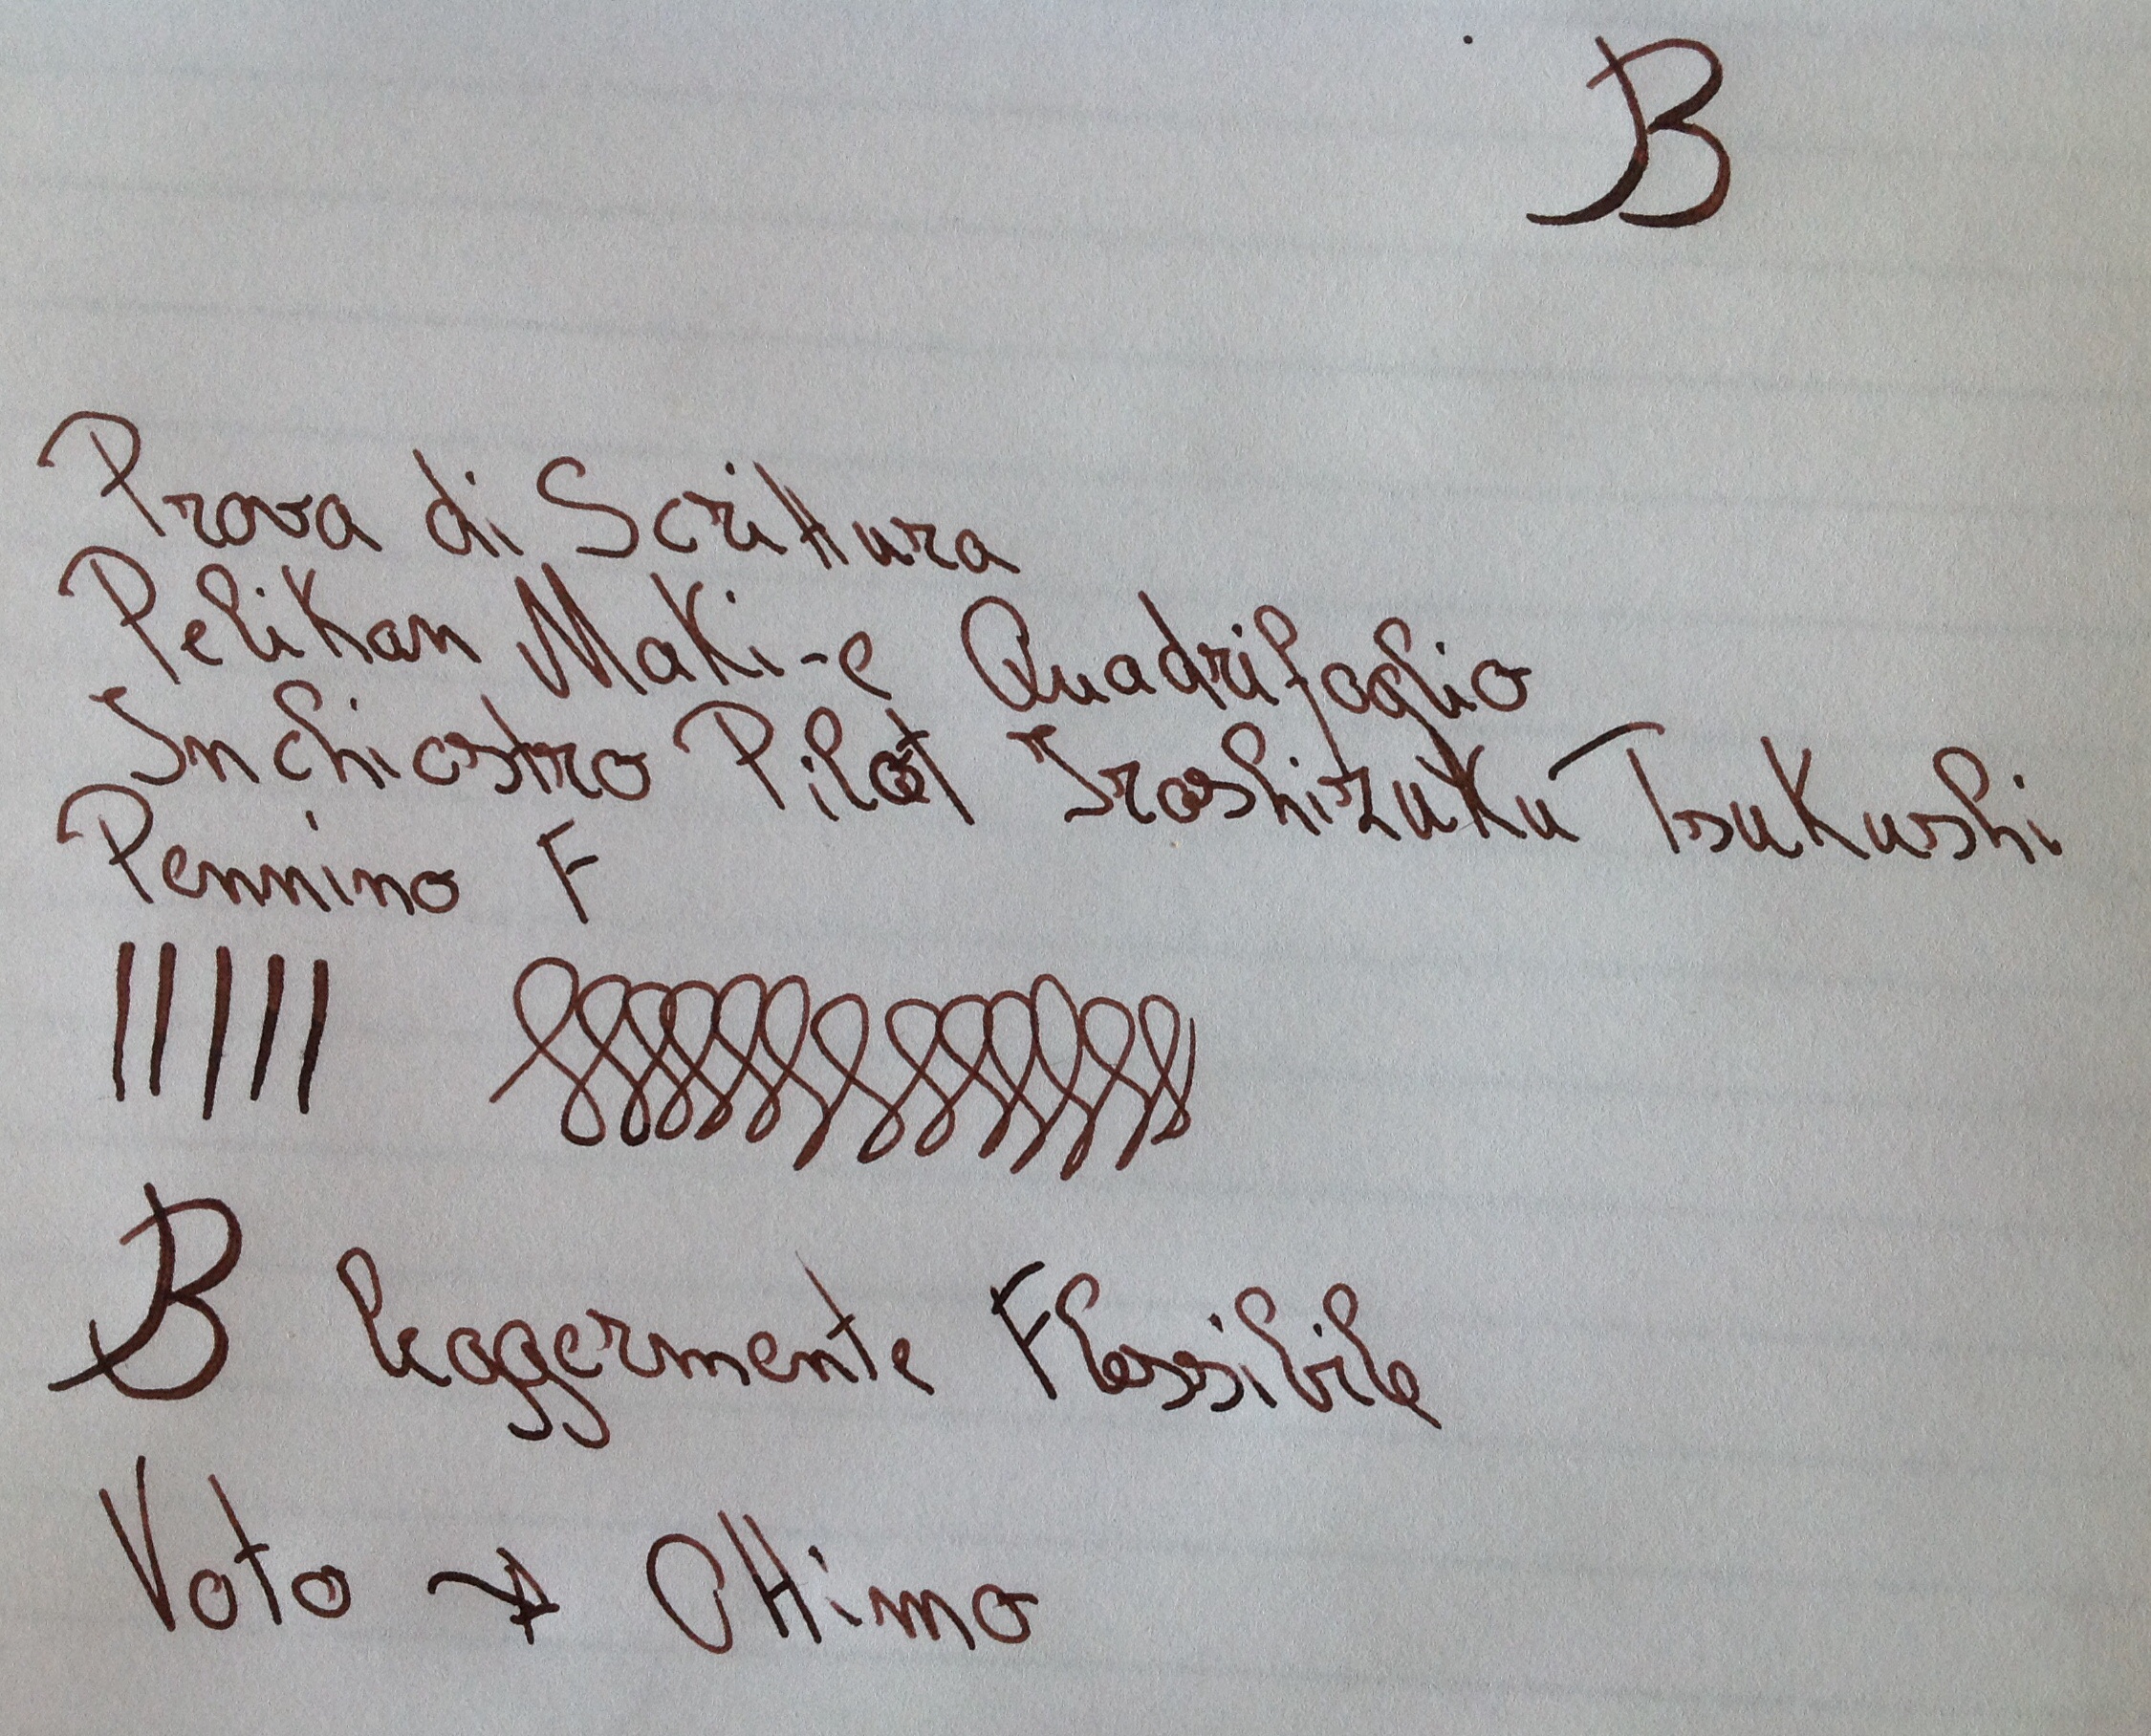 B
Prova di Scrittura
Pelikan Maki-e Quadrifoglio
Inchiostro Pilot Iroshizuku Tsukushi
Pennino F
B leggermente Flessibile
Voto → Ottimo